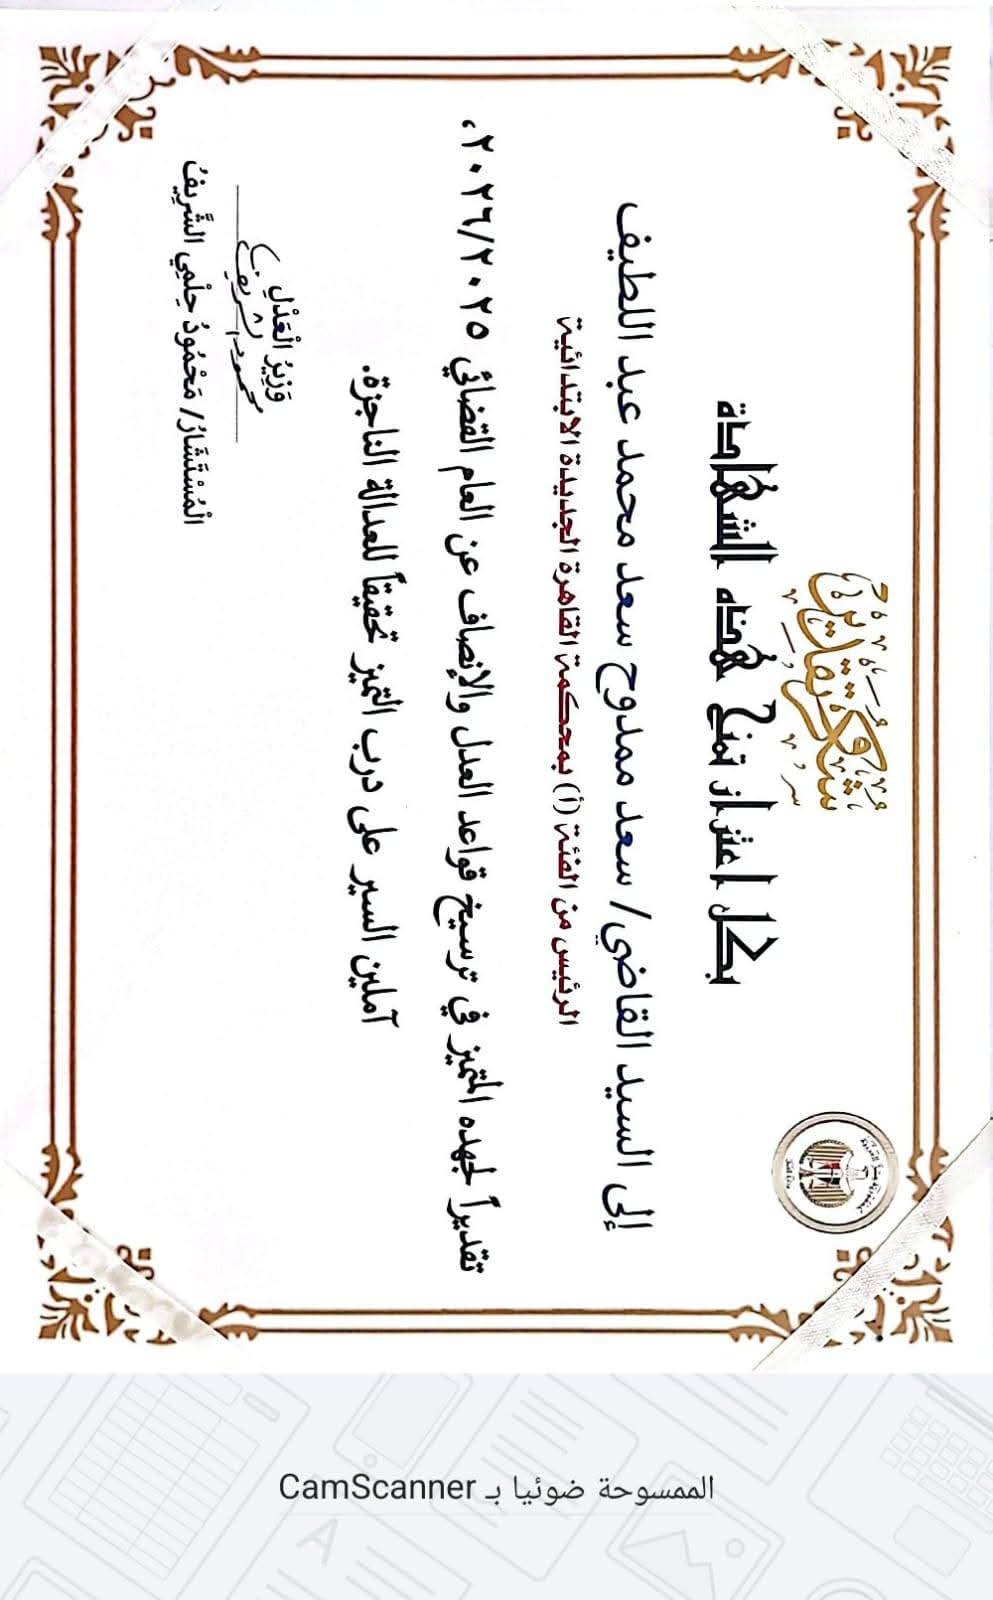 شُكْرٌ وَتَقْدِيرٌ
بكل اعتزاز تمنح هذه الشهادة
إلى السيد القاضي/ سعد ممدوح سعد محمد عبد اللطيف
الرئيس من الفئة (أ) بمحكمة القاهرة الجديدة الابتدائية
تقديراً لجهده المتميز في ترسيخ قواعد العدل والإنصاف عن العام القضائي ٢٠٢٦/٢٠٢٥،
آملين السير على درب التميز تحقيقاً للعدالة الناجزة.
وَزِيرُ الْعَدْلِ
محمود الشريف
الْمُسْتَشَارُ/ مَحْمُودُ حِلْمِي الشَّرِيفُ
الممسوحة ضوئيا بـ CamScanner